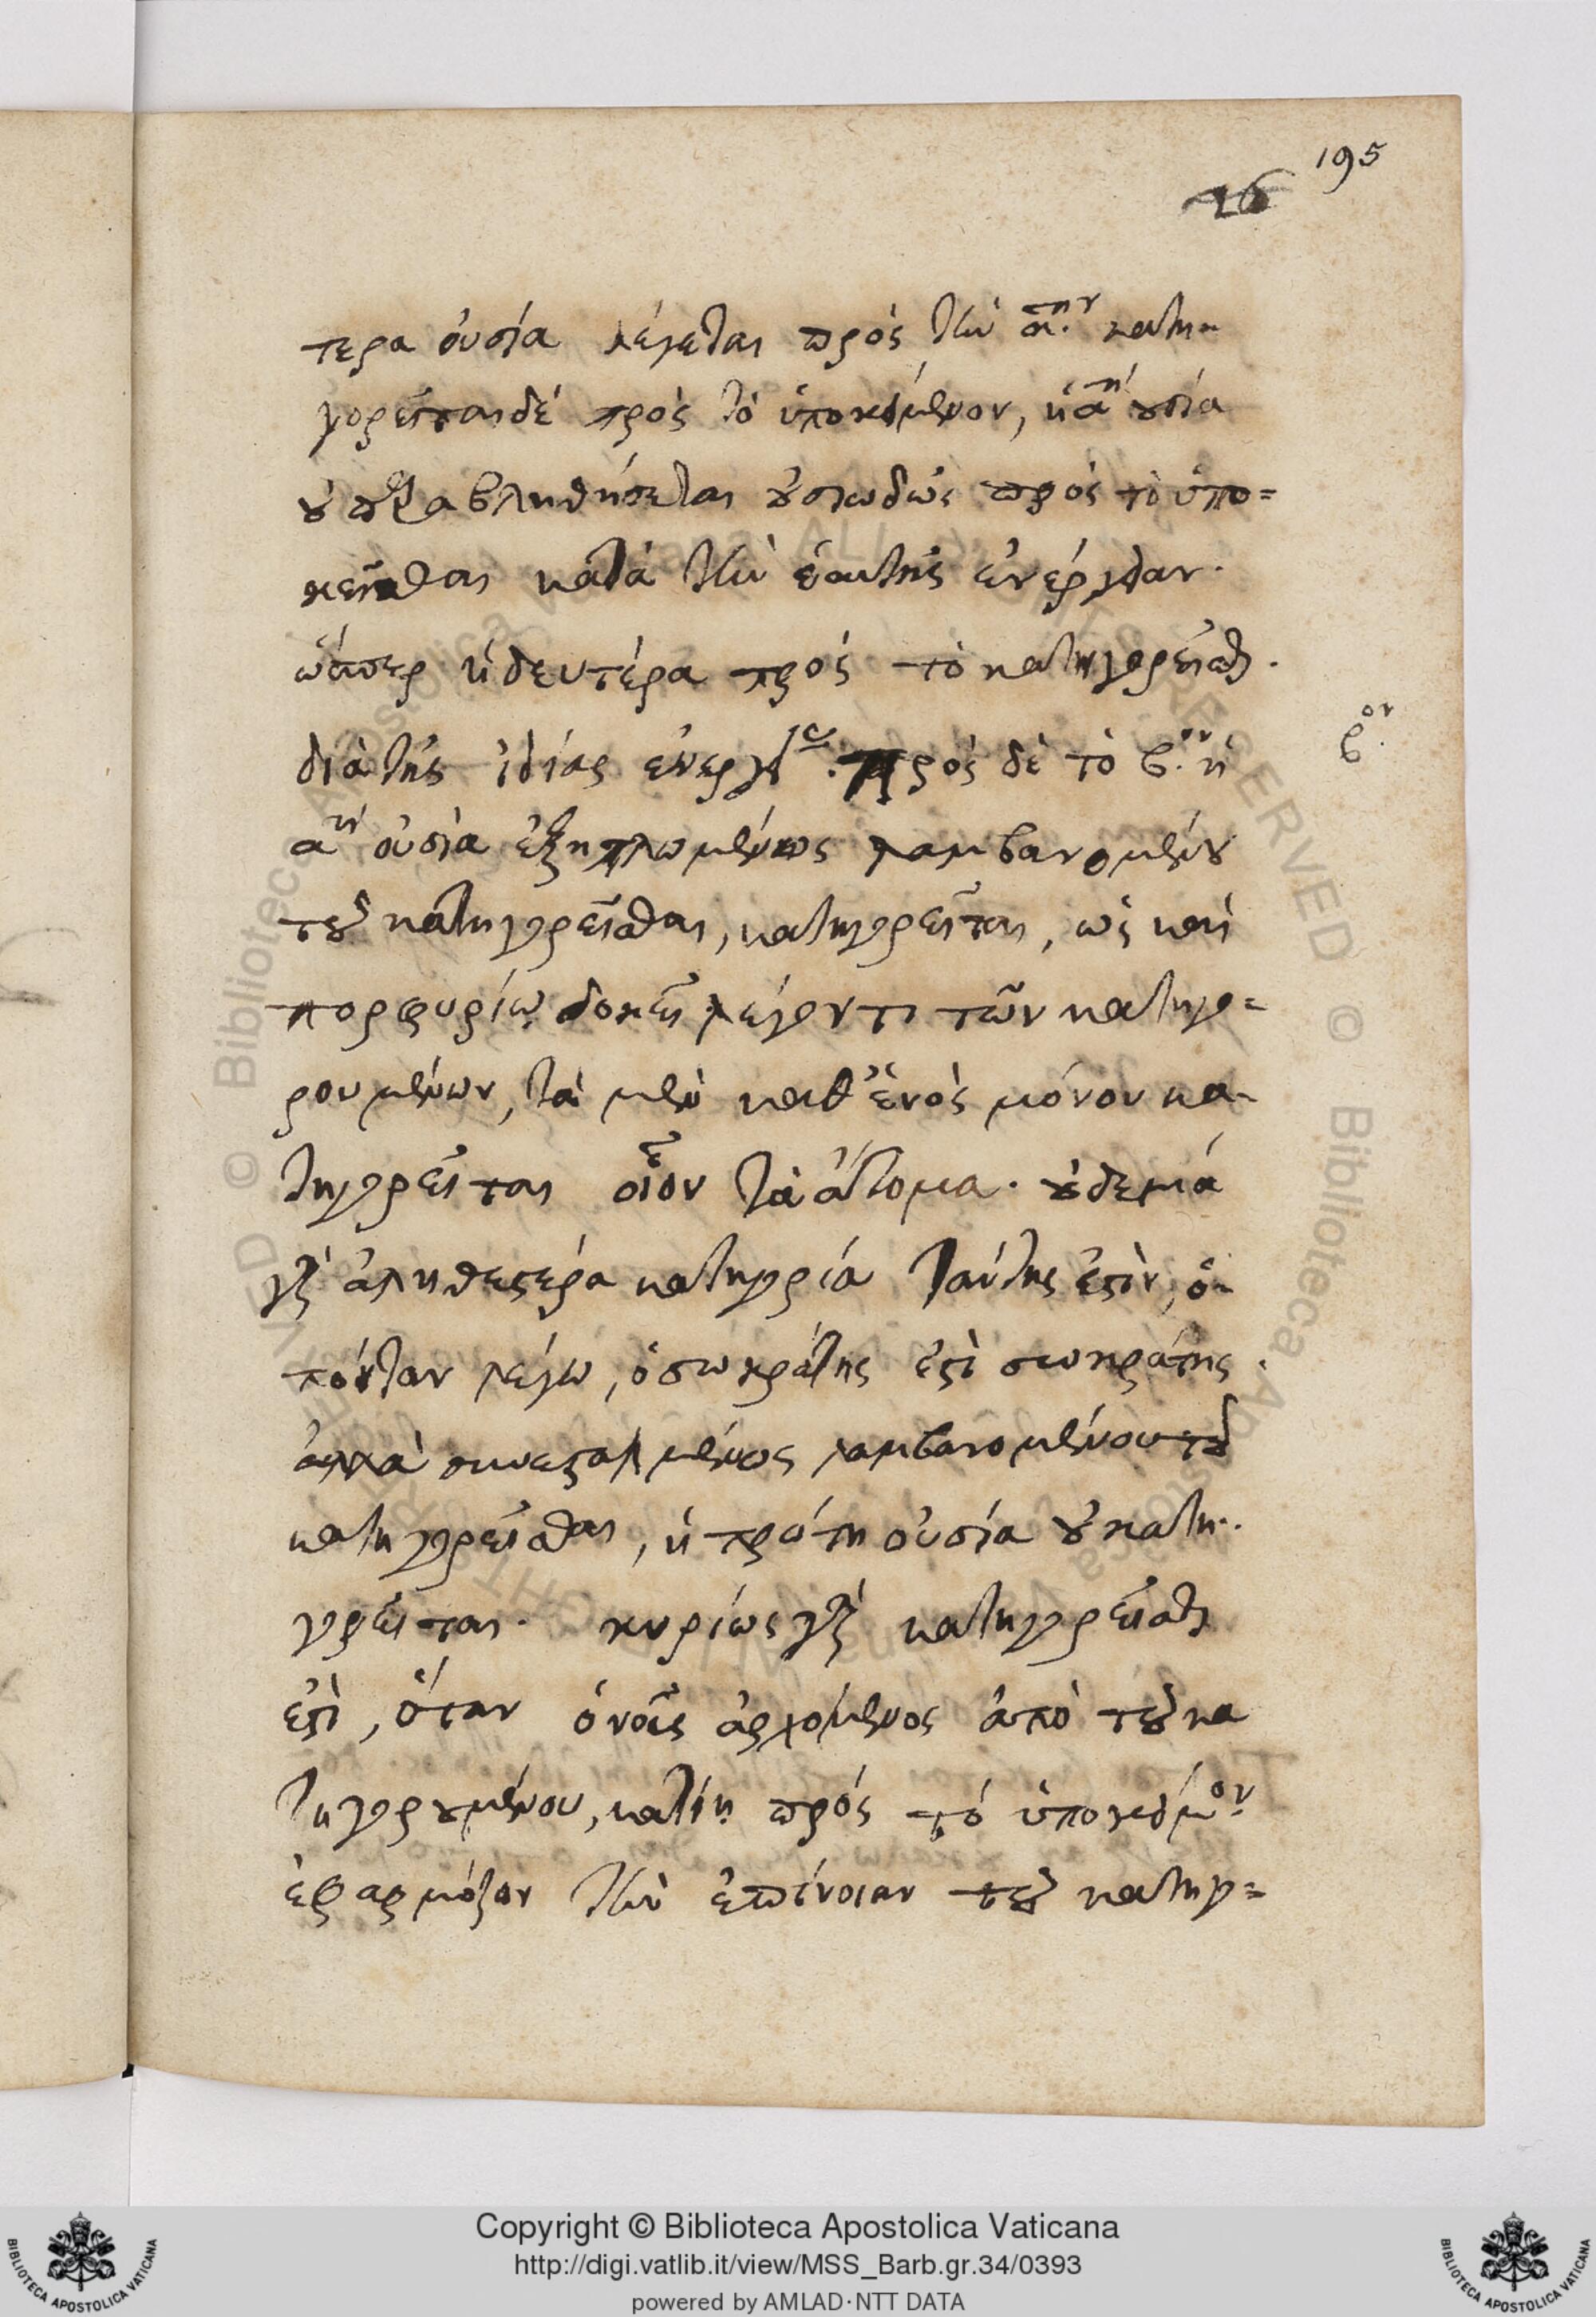 195
26
τερα οὐσία λέγεται πρὸς τὴν α.ην κατη-
γορεῖται δὲ πρὸς τὸ ὑποκείμενον, ἡ αη οὐσία
οὐ παραβληθήσεται οὐσιωδῶς πρὸς τὸ ὑπο=
κεῖσθαι κατὰ τὴν ἑαυτῆς ἐνέργειαν.
ὥσπερ ἡ δευτέρα πρὸς τὸ κατηγορεῖσθαι.
διὰ τῆς ἰδίας ἐνεργείας. Πρὸς δὲ τὸ β.ον ἡ
β.ον
αη οὐσία ἐξηπλωμένως λαμβανομένου
τοῦ κατηγορεῖσθαι, κατηγορεῖται, ὡς καὶ
πορφυρίῳ δοκεῖ λέγοντι τῶν κατηγο=
ρουμένων, τὰ μὲν καθ' ἑνὸς μόνον κα-
τηγορεῖται οἷον τὰ ἄτομα. οὐδεμιά
γὰρ ἀληθεστέρα κατηγορία ταύτης ἐστὶν, ὁ-
πόταν λέγω, ὁ σωκράτης ἐστὶ σωκράτης.
ἀλλὰ συνεσταλμένως λαμβανομένου τοῦ
κατηγορεῖσθαι, ἡ πρώτη οὐσία οὐ κατη-
γορεῖται. κυρίως γὰρ κατηγορεῖσθαι
ἐστὶ, ὅταν ὁ νοῦς ἀρχόμενος ἀπὸ τοῦ κα
τηγορουμένου, κατίῃ πρὸς τὸ ὑποκείμον.
ἐφαρμόζον τὴν ἐπίνοιαν τοῦ κατηγο=
Copyright © Biblioteca Apostolica Vaticana
http://digi.vatlib.it/view/MSS_Barb.gr.34/0393
powered by AMLAD·NTT DATA